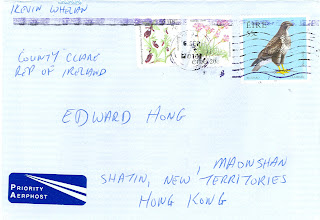 IREVIN WHELAN
COUNTY CLARE
REP OF IRELAND
ÉIRE
55c
EDWARD HONG
MAONSHAN
SHATIN, NEW TERRITORIES
HONG KONG
PRIORITY
AERPHOST